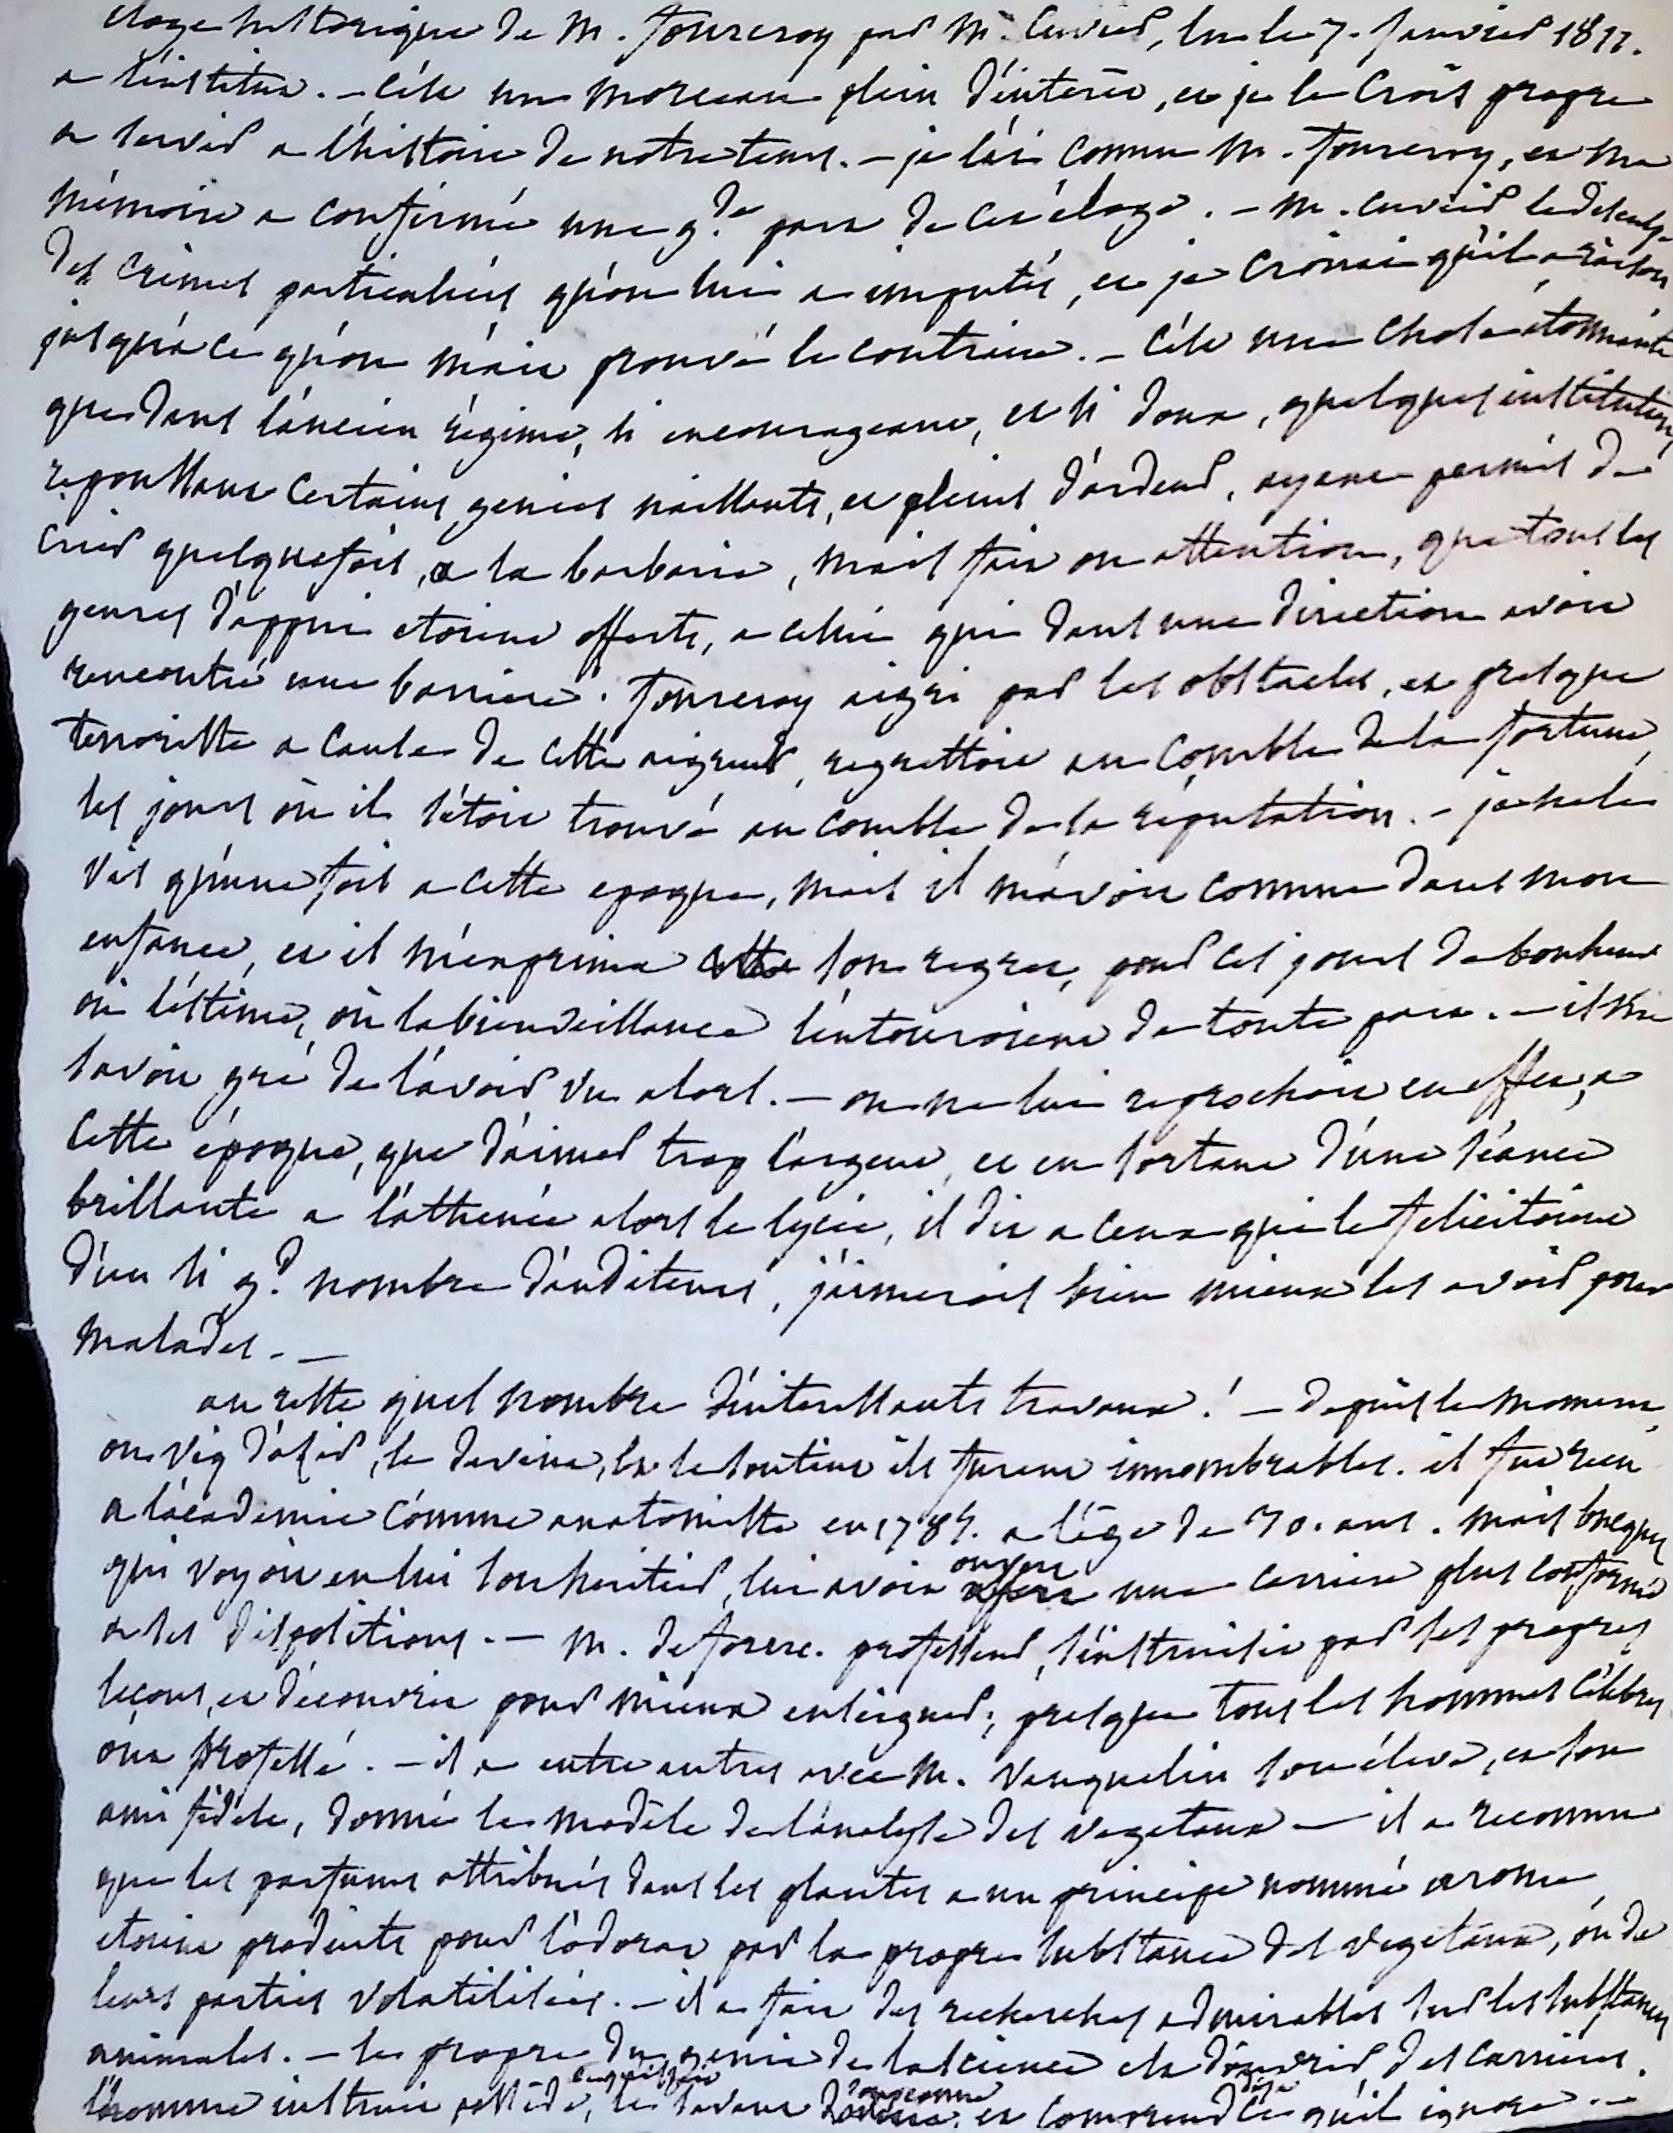 eloge historique de M. fourcroy par M. Cuvier, lu le 7. janvier 1811.
a l'institut. – c'est un morceau plein d'interêt, et je le crois propre
a servir a l'histoire de notre tems. – je l'ai connu M. fourcroy, et ma
mémoire a confirmé une g.de part de cet éloge. – M. cuvier le disculpe
des crimes particuliers qu'on lui a imputés, et je croirai qu'il a raison
jusqu'à ce qu'on m'ait prouvé le contraire. – c'est une chose étonnante
que dans l'ancien régime, si encourageant, et si doux, quelques institutions,
repoussant certains genies naissants, et pleins d'ardeur, ayent permis de
crier quelquefois, a la barbarie, mais fait on attention, que tous les
genres d'appui etoient offerts, a celui qui dans une direction avoit
rencontré une barriere. fourcroy aigri par les obstacles, et presque
terroriste a cause de cette aigreur, regrettoit au comble de la fortune,
les jours où il s'étoit trouvé au comble de la réputation. – je ne le
vis qu'une fois a cette epoque, mais il m'avoit connue dans mon
enfance, et il m'exprima son regret, pour ces jours de bonheur
où l'estime, où la bienveillance l'entouroient de toute part. – il me
savoit gré de l'avoir vu alors. – on ne lui reprochoit en effet, a
cette époque, que d'aimer trop l'argent, et en sortant d'une séance
brillante a l'athenée alors le lycée, il dit a ceux qui le felicitoient
d'un si g.d nombre d'auditeurs, j'aimerois bien mieux les avoir pour
malades. –
au reste quel nombre d'interessants travaux! – depuis le moment
ou viq d'azir, le devina, et le soutint ils furent innombrables. il fut reçu
a l'academie comme anatomiste en 178 a l'âge de 30. ans. mais bucquet
qui voyoit en lui son heritier, lui avoit ouvert une carriere plus conforme
a ses dispositions. – M. de fourc. professeur, s'instruisit par ses propres
leçons, et découvrit pour mieux enseigner; presque tous les hommes célèbres
ont professé. – il a entre autres avec M. Vauquelin son élève, et son
ami fidèle, donné le modèle de l'analyse des vegetaux – il a reconnu
que les parfums attribués dans les plantes a un principe nommé arome
etoient produits pour l'odorat par la propre substance des vegetaux, ou de
leurs parties volatilisées. – il a fait des recherches admirables sur les substances
animales. – le propre du genie de la science est d'ouvrir des carrieres.
l'homme instruit possède, le savant et comprend déjà ce qu'il ignore. –